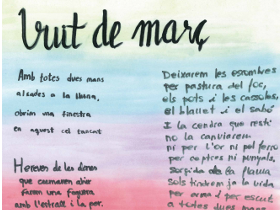 Vuit de març
Amb totes dues mans
alçades a la lluna,
obrim una finestra
en aquest cel tancat
Hereves de les dones
que cremaren ahir
farem una foguera
amb l'estrall i la por.
Deixarem les escombres
per pastura del foc,
els pots i les cassoles,
el blauet i el sabó
I la cendra que resti
no la canviarem
ni per l'or ni pel ferro
per ceptres ni punyals.
Sorgida de la flama
sols tindrem ja la vida
per arma i per escut
a totes dues mans.